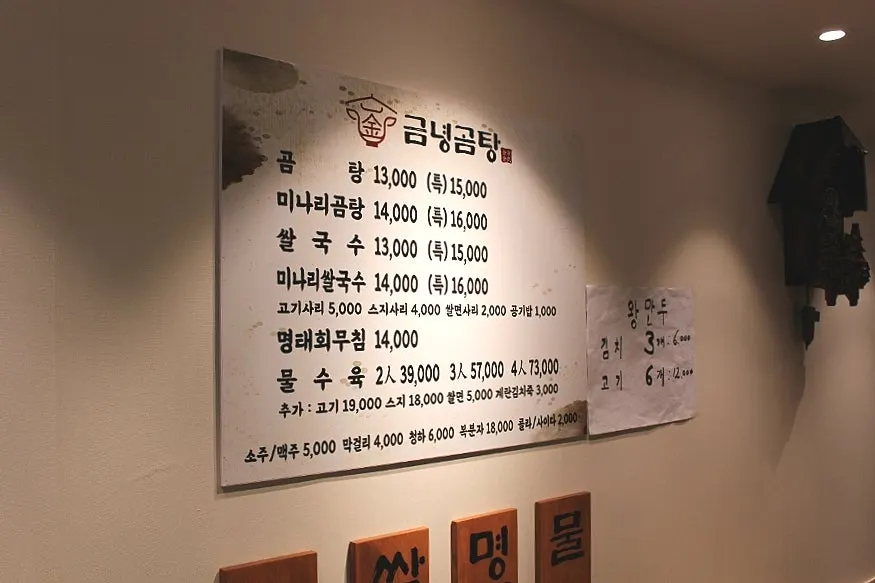 金
금녕곰탕
곰 탕 13,000 (특) 15,000
미나리곰탕 14,000 (특) 16,000
쌀 국 수 13,000 (특) 15,000
미나리쌀국수 14,000 (특) 16,000
고기사리 5,000 스지사리 4,000 쌀면사리 2,000 공기밥 1,000
명태회무침 14,000
물 수 육 2人 39,000 3人 57,000 4人 73,000
추가 : 고기 19,000 스지 18,000 쌀면 5,000 계란김치죽 3,000
소주/맥주 5,000 막걸리 4,000 청하 6,000 복분자 18,000 콜라/사이다 2,000
왕만두
김치 3개 : 6.000
고기 6개 : 12.000
쌀 명 물